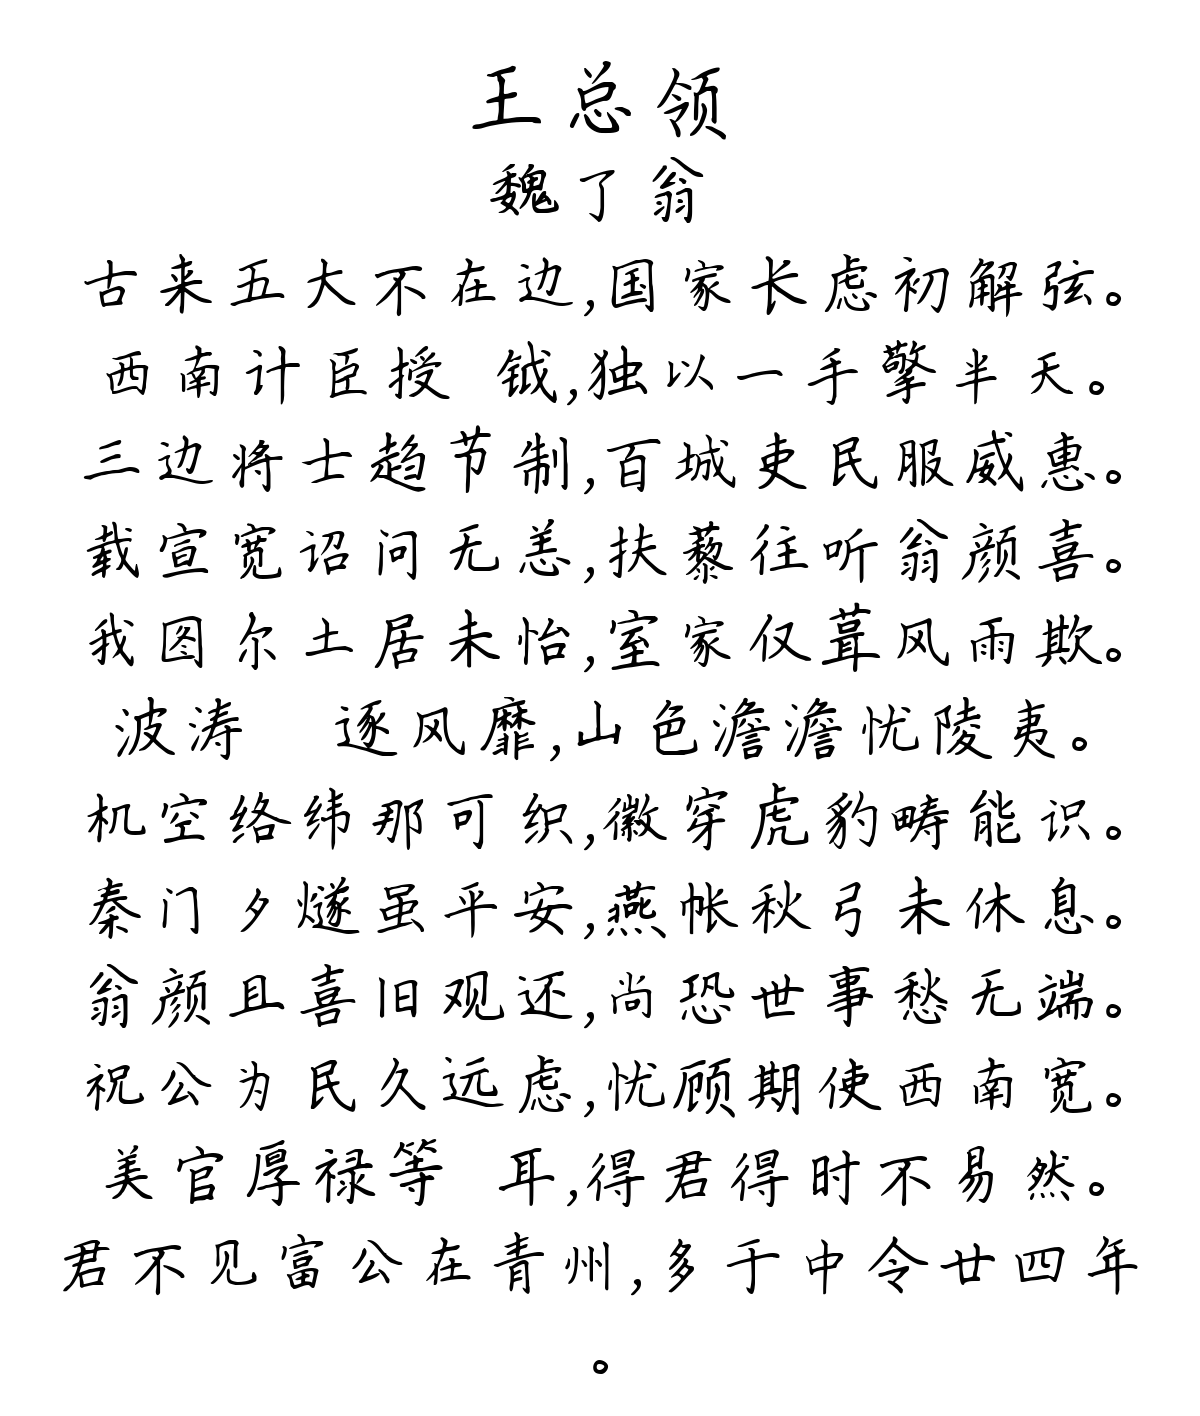 王总领
魏了翁
古来五大不在边,国家长虑初解弦。
西南计臣授 钺,独以一手擎半天。
三边将士趋节制,百城吏民服威惠。
载宣宽诏问无恙,扶藜往听翁颜喜。
我图尔土居未怡,室家仅葺风雨欺。
波涛 逐风靡,山色澹澹忧陵夷。
机空络纬那可织,徽穿虎豹畴能识。
秦门夕燧虽平安,燕帐秋弓未休息。
翁颜且喜旧观还,尚恐世事愁无端。
祝公为民久远虑,忧顾期使西南宽。
美官厚禄等 耳,得君得时不易然。
君不见富公在青州,多于中令廿四年
。